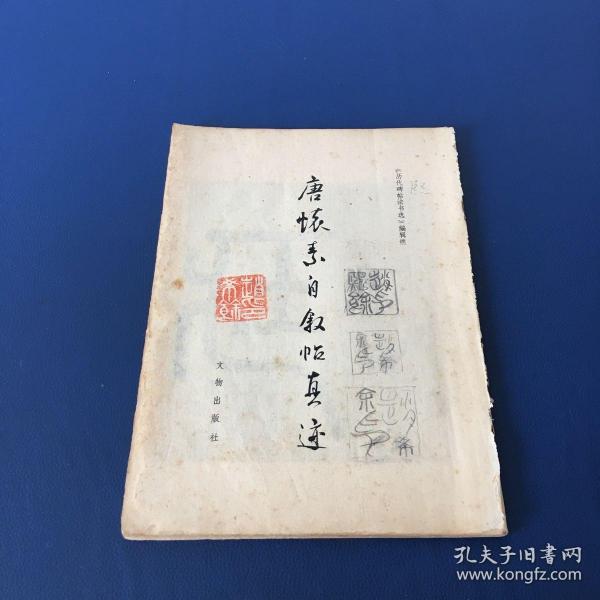 《历代碑帖法书选》编辑组
唐怀素自叙帖真迹
文物出版社
孔夫子旧书网
www.kongfz.com